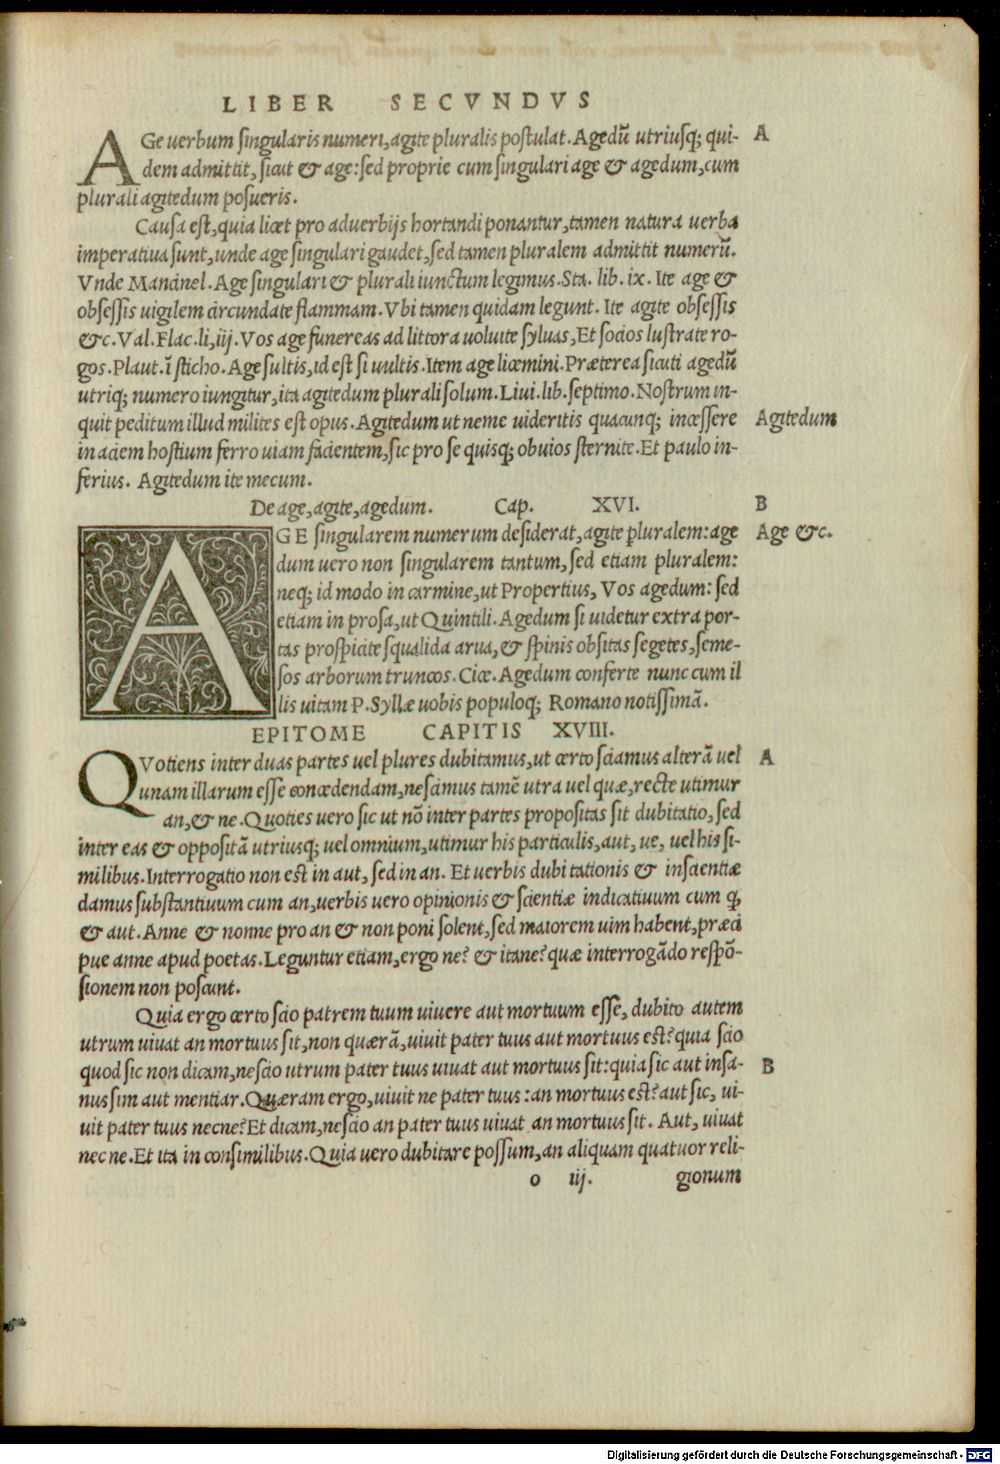 LIBER SECVNDVS
AGe uerbum singularis numeri, agite pluralis postulat. Agedū utriusq; qui- A
dem admittit, sicut & age: sed proprie cum singulari age & agedum, cum
plurali agitedum posueris.
Causa est, quia licet pro aduerbijs hortandi ponantur, tamen natura uerba
imperatiua sunt, unde age singulari gaudet, sed tamen pluralem admittit numerū.
Vnde Mancinel. Age singulari & plurali iunctum legimus. Sta. lib. ix. Ite age &
obsessis uigilem circundate flammam. Vbi tamen quidam legunt. Ite agite obsessis
&c. Val. Flac. li, iij. Vos age funereas ad littora uoluite syluas, Et socios lustrate ro-
gos. Plaut. ī sticho. Age sultis, id est si uultis. Item age licemini. Præterea sicuti agedū
utriq; numero iungitur, ita agitedum plurali solum. Liui. lib. septimo. Nostrum in-
quit peditum illud milites est opus. Agitedum ut neme uideritis quacunq; incessere Agitedum
in aciem hostium ferro uiam facientem, sic pro se quisq; obuios sternite. Et paulo in-
ferius. Agitedum ite mecum.
De age, agite, agedum. Cap. XVI. B
AGE singularem numerum desiderat, agite pluralem: age Age &c.
dum uero non singularem tantum, sed etiam pluralem:
neq; id modo in carmine, ut Propertius, Vos agedum: sed
etiam in prosa, ut Quintili. Agedum si uidetur extra por-
tas prospicite squalida arua, & spinis obsitas segetes, seme-
sos arborum truncos. Cice. Agedum conferte nunc cum il
lis uitam P. Syllæ uobis populoq; Romano notissimā.
EPITOME CAPITIS XVIII.
QVotiens inter duas partes uel plures dubitamus, ut certo sciamus alterā uel A
unam illarum esse concedendam, nescimus tamē utra uel quæ, recte utimur
an, & ne. Quoties uero sic ut nō inter partes propositas sit dubitatio, sed
inter eas & oppositā utriusq; uel omnium, utimur his particulis, aut, ue, uel his si-
milibus. Interrogatio non est in aut, sed in an. Et uerbis dubitationis & inscientiæ
damus substantiuum cum an, uerbis uero opinionis & scientiæ indicatiuum cum q̨
& aut. Anne & nonne pro an & non poni solent, sed maiorem uim habent, præci
pue anne apud poetas. Leguntur etiam, ergo ne? & itane? quæ interrogādo respō-
sionem non poscunt.
Quia ergo certo scio patrem tuum uiuere aut mortuum esse, dubito autem
utrum uiuat an mortuus sit, non quærā, uiuit pater tuus aut mortuus est? quia scio
quod sic non dicam, nescio utrum pater tuus uiuat aut mortuus sit: quia sic aut insa- B
nus sim aut mentiar. Quæram ergo, uiuit ne pater tuus: an mortuus est? aut sic, ui-
uit pater tuus necne? Et dicam, nescio an pater tuus uiuat an mortuus sit. Aut, uiuat
nec ne. Et ita in consimilibus. Quia uero dubitare possum, an aliquam quatuor reli-
o iij. gionum
Digitalisierung gefördert durch die Deutsche Forschungsgemeinschaft - DFG